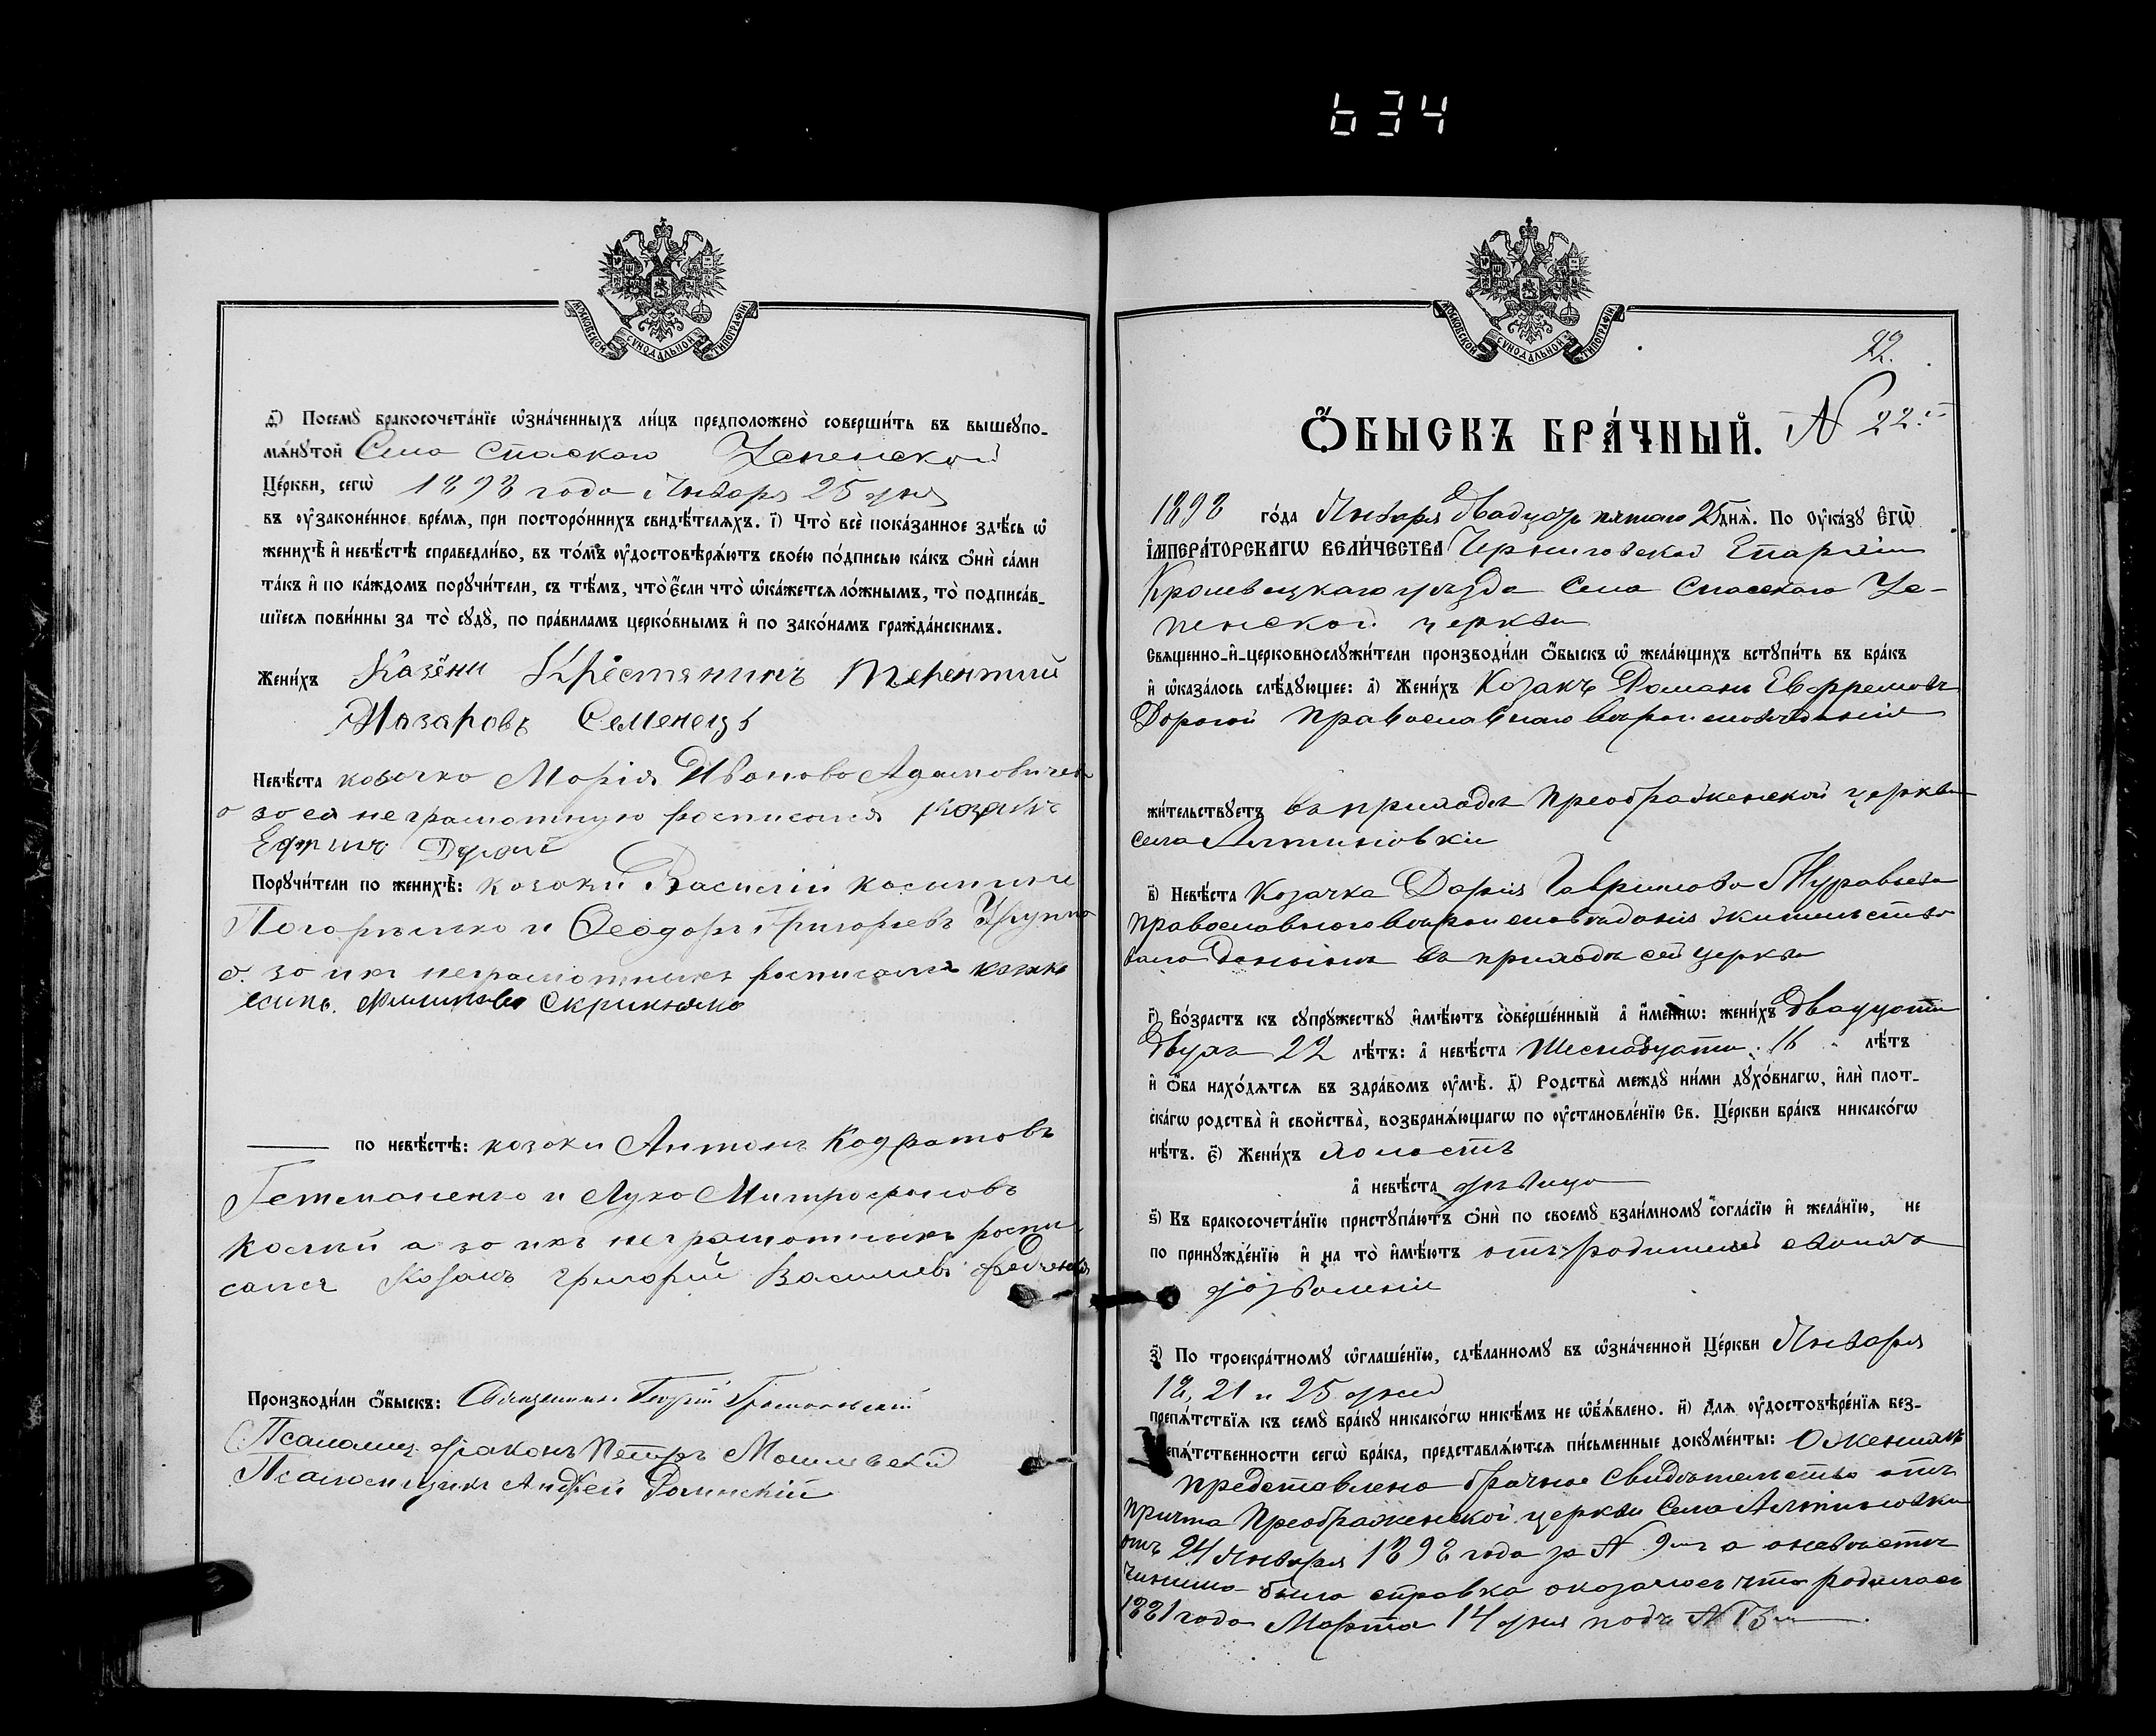 634
МОСКОВСКОЙ СѴНОДАЛЬНОЙ ТИПОГРАФІИ
д҃і) Посемꙋ̀ бракосочета́нїе ѡ҆зна́ченныхъ ли́цъ предположено̀ соверши́ть въ вышеꙋпо-
мѧ́нꙋтой Села Спаскаго Успенской
Це́ркви, сегѡ̀ 1898 года Января 25 дня
въ ᲂу҆законе́нное вре́мѧ, при посторо́ннихъ свидѣ́телѧхъ. і҃) Что̀ всѐ пока́занное здѣ́сь ѡ҆
женихѣ̀ и҆ невѣ́стѣ справедли́во, въ то́мъ ᲂу҆достовѣрѧ́ютъ свое́ю по́дписью ка́къ ѻ҆нѝ са́ми
та́къ и҆ по ка́ждомъ порꙋчи́тели, съ тѣ́мъ, что̀ є҆́сли что̀ ѡ҆ка́жетсѧ ло́жнымъ, то̀ подписа́в-
шїесѧ пови́нны за то̀ сꙋдꙋ̀, по пра́виламъ церко́внымъ и҆ по зако́намъ гражда́нскимъ.
Жени́хъ Казёни Крестянинъ Терентий
Назаровъ Семенецъ
Невѣ́ста козачка Марія Иванова Адамовичева
а за ея неграмотную росписался козакъ
Порꙋчи́тели по женихѣ̀: козаки Василій Касьянов
Погорѣлко и Ѳеодоръ Григорьевъ
а за ихъ неграмотныхъ росписался козакъ
Скрипочко
по невѣ́стѣ: козаки Антонъ Кодратовъ
Гетманенко и Лука Митрофановъ
а за ихъ неграмотныхъ роспи
сался Козакъ Григорій Василиевъ
Производи́ли ѻ҆́быскъ: Священникъ Георгій
Псаломщ. діаконъ Петръ
Псаломщикъ Андрей Долинскій
МОСКОВСКОЙ СѴНОДАЛЬНОЙ ТИПОГРАФІИ
22.
Ѻ҆́БЫСКЪ БРА́ЧНЫЙ. N 22.
1898 го́да Января двадцать пятаго 25 днѧ̀. По ᲂу҆ка́зꙋ Є҆ГѠ̀
І҆МПЕРА́ТОРСКАГѠ ВЕЛИ́ЧЕСТВА Черниговской Епархіи
Кролевецкаго уѣзда Села Спасскаго Ус-
пенской церкви
Свѧще́нно-и҆-церковнослꙋжи́тели производи́ли ѻ҆́быскъ ѡ҆ жела́ющихъ встꙋпи́ть въ бра́къ
и҆ ѡ҆каза́лось слѣ́дꙋющее: а҃) Жени́хъ Козакъ Романъ Евфремовъ
Дорогой православнаго вѣроисповѣданія
жи́тельствꙋетъ въ приходѣ Преображенской церкви
села Алтиновки
в҃) Невѣ́ста Козачка Дарія Гаврилова Муравьева
православного вѣроисповѣданія жительство
вала донынѣ въ приходѣ сей церкви
г҃) Во́зрастъ къ сꙋпрꙋ́жествꙋ и҆мѣ́ютъ соверше́нный а҆ и҆́меннѡ: жени́хъ двадцати
двухъ 22 лѣ́тъ: а҆ невѣ́ста шеснадцати 16 лѣ́тъ
и҆ ѻ҆́ба нахо́дѧтсѧ въ здра́вомъ ᲂу҆мѣ̀. д҃) Родства̀ междꙋ̀ ни́ми дꙋхо́внагѡ, и҆лѝ плот-
ска́гѡ родства̀ и҆ сво́йства, возбранѧ́ющагѡ по ᲂу҆становле́нїю Св. Це́ркви бра́къ никако́гѡ
нѣ́тъ. є҃) Жени́хъ холостъ
а҆ невѣ́ста дѣвица
ѕ҃) Къ бракосочета́нїю пристꙋпа́ютъ ѻ҆нѝ по своемꙋ̀ взаи́мномꙋ согла́сїю и҆ жела́нїю, не
по принꙋжде́нїю и҆ на то̀ и҆мѣ́ютъ отъ родителей своихъ
дозволеніе
з҃) По троекра́тномꙋ ѡ҆глаше́нїю, сдѣ́ланномꙋ въ ѡ҆зна́ченной Це́ркви Января
18, 21 и 25 дней
препѧ́тствїѧ къ семꙋ̀ бра́кꙋ никако́гѡ никѣ́мъ не ѡ҆б̾ѧ́влено. и҃) Длѧ̀ ᲂу҆достовѣре́нїѧ без-
препѧ́тственности сегѡ̀ бра́ка, представлѧ́ютсѧ пи́сьменные докꙋме́нты: О женихѣ
представлено брачное свидѣтельство отъ
причта Преображенской церкви села Алтиновки
отъ 24 Января 1898 года за N 9 а о невѣстѣ
чинима была справка оказалось что родилась
1881 года Марта 14 дня подъ N 13